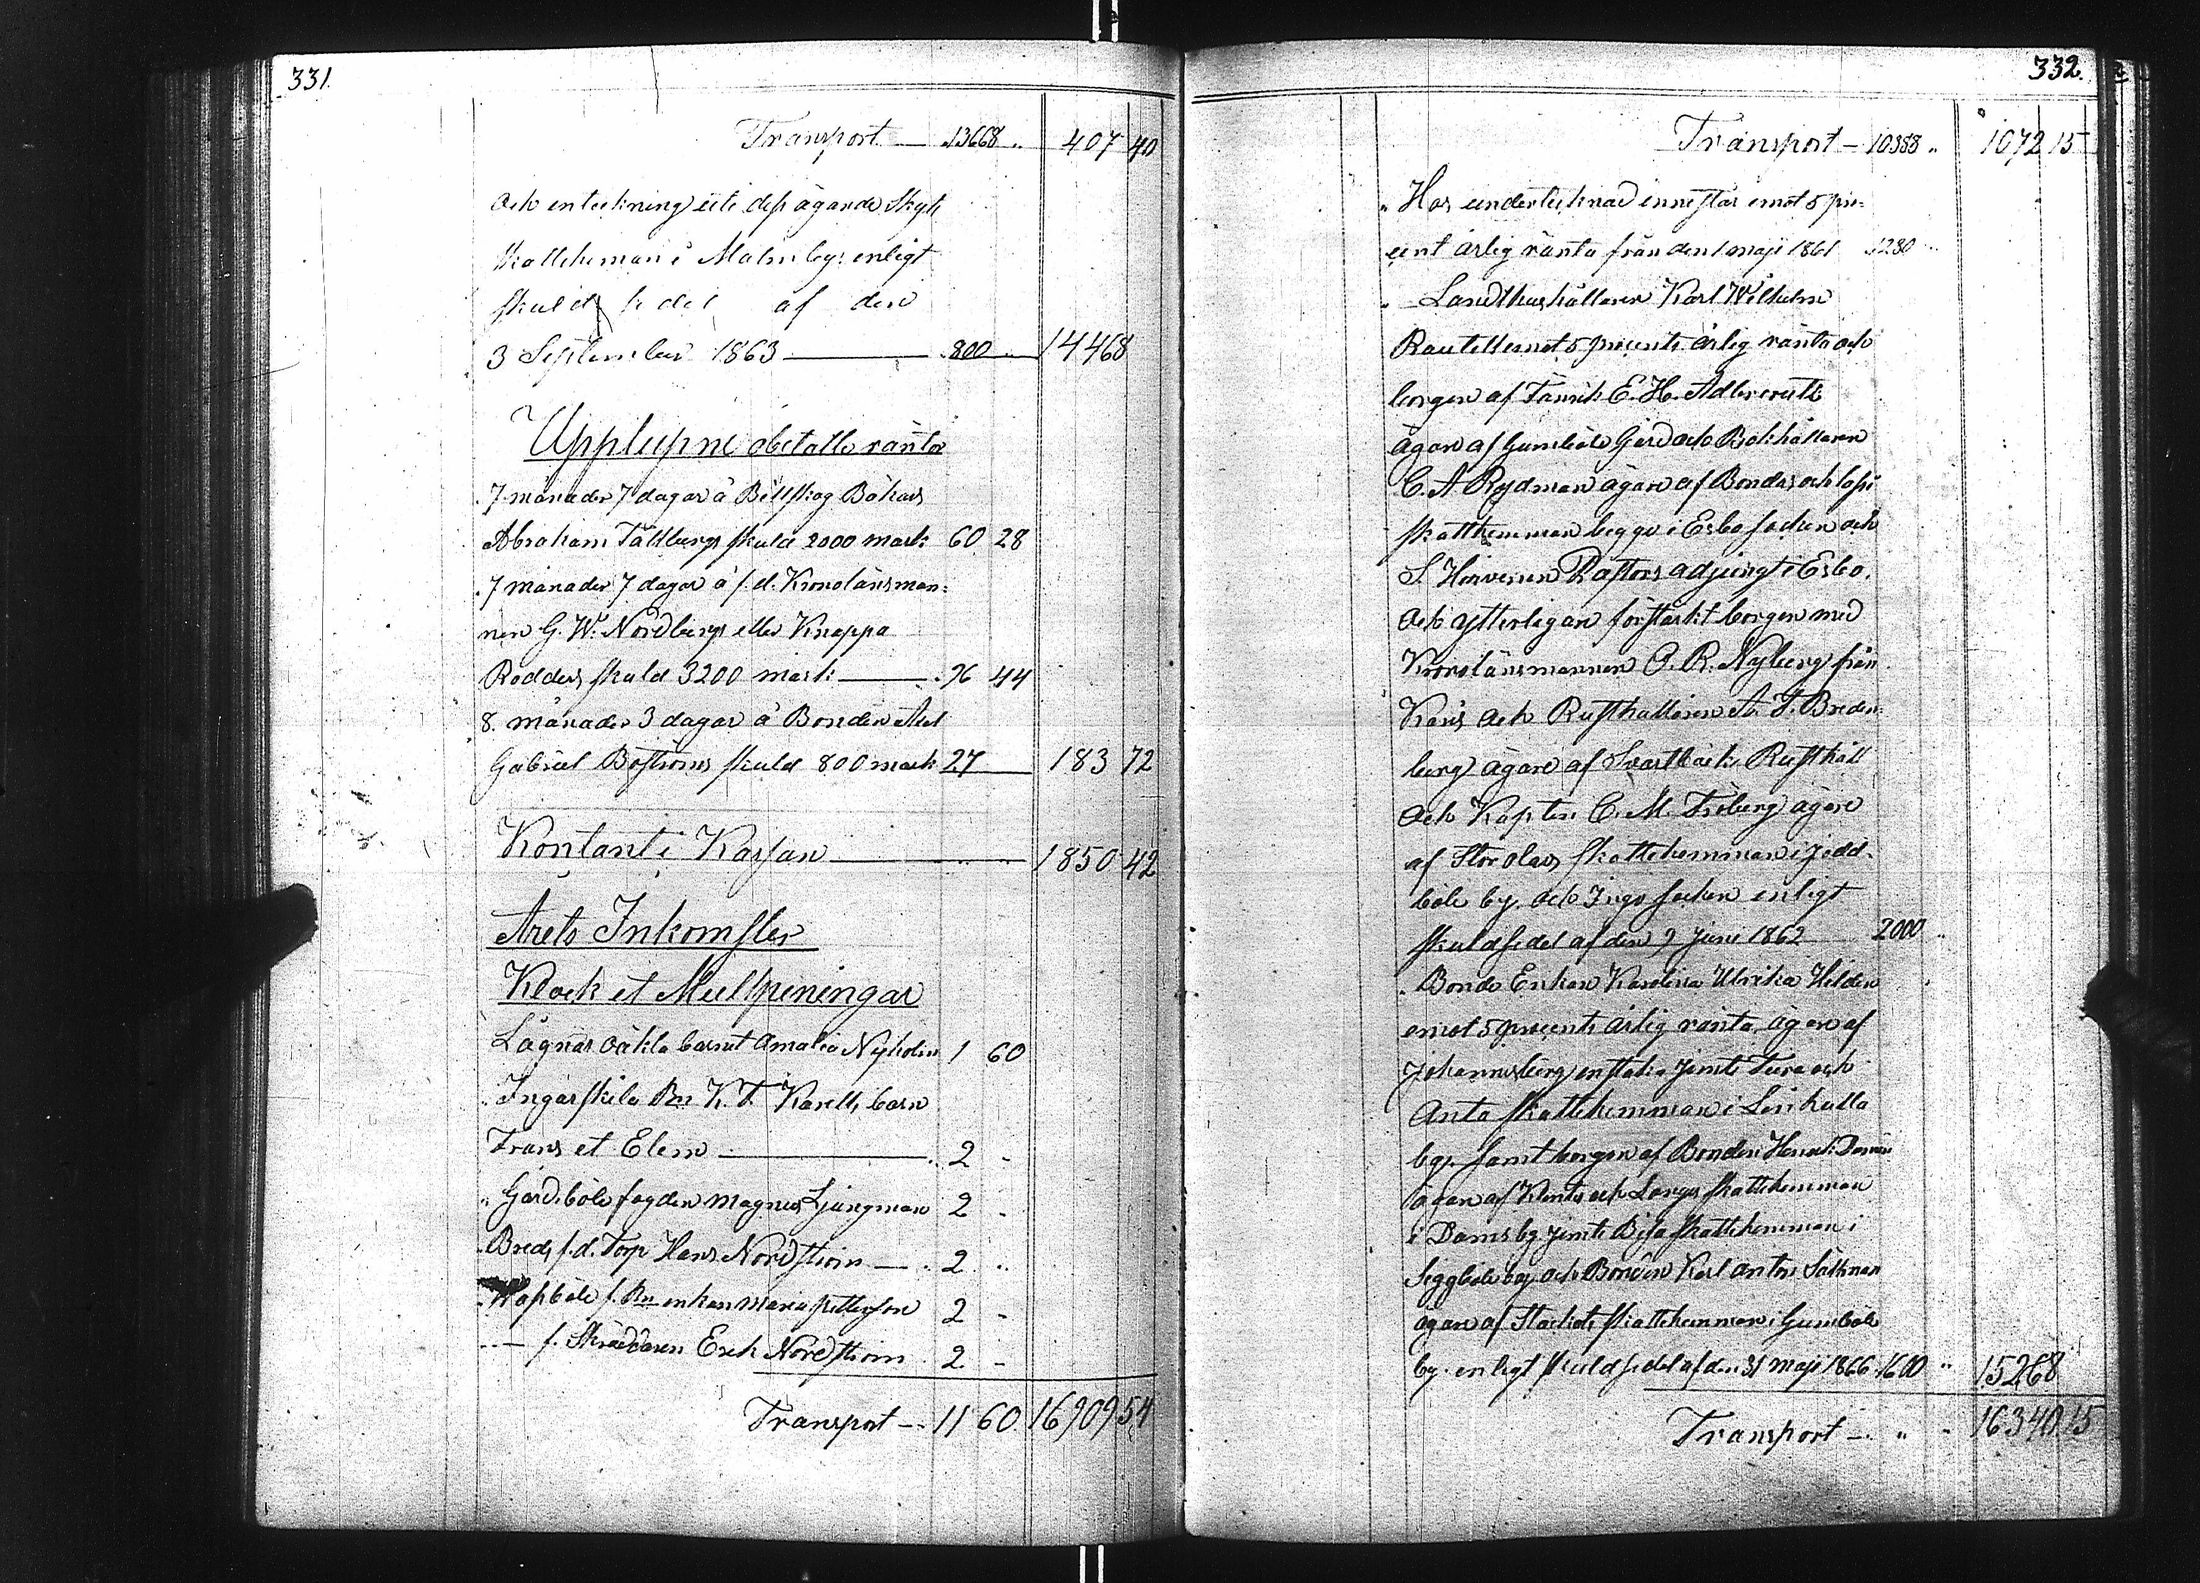 331.
Transport — 13668 „ 407 40
och inteckning uti dess ägande
Skatteheman i Malmby: enligt
skuldsedel af den
3 September 1863 — 800 „ 14468
Upplupne obetalte räntor
7 månader 7 dagar å Billskog Bökars
Abraham Tallbergs skuld 2000 mark 60 28
7 månader 7 dagar å f. d. Kronolänsman-
nen G. W. Nordbergs eller Knappa
Rodders skuld 3200 mark — 96 44
8. månader 3 dagar å Bonden Axel
Gabriel Boströms skuld 800 mark 27 — 183 72
Kontant i Kassan — 1850 42
Årets Inkomster
Klock et Mullpeningar
Lågnäs oäkta barnet Amalia Nyholm 1 60
Ingarskila Bn K. F. Karells barn
Frans et Elem — 2 -
„ Gårdsböle fogden Magnus Ljungman 2 -
Breds f. d. Torp Hans Nordström — 2 „
f. Bn enkan Maria Petterson 2 -
„ — f. Skräddaren Erik Nordström 2 -
Transport — 11 60 16909 54
332.
Transport — 10388 „ 1072 15
„ Hos undertecknad innestår emot 5 pro-
cent årlig ränta från den 1 maji 1861 1280 „
„ Landthushållaren Karl Wilhelm
emot 5 procents årlig ränta och
borgen af Fänrik E. H. Adlercreutz
ägare af Gumböle Gård och Bokhållaren
C. A Rydman ägare af Bondas och
skattehemman begge i Esbo socken och
S. Hirvenen Pastors adjungt i Esbo.
och ytterligare förstärkt borgen med
Kronolänsmannen O. R. Nyberg från
Karis och Rusthållaren A. F. Breden-
berg ägare af Svartbäck Rusthåll
och Kapten C. M. Froberg ägare
af Storolars skattehemman i Jodd-
böle by. och Ingo socken enligt
skuldsedel af den 9 Juni 1862 2000 „
„ Bonde Enkan Karolina Ulrika Hilden
emot 5 procents årlig ränta, ägare af
Johannisberg enstaka jemte Tura och
Anta skattehemman i Linkulla
by. samt borgen af Bonden Henrik
ägare af Klints och Långs skattehemman
i Damsby jemte Bisa skattehemman i
Siggböle by och Bonden Karl Anton Sällman
ägare af Stackots skattehemman i Gumböle
by. enligt skuldsedel af den 31 maji 1866 1600 „ 15268
Transport — „ „ 16340 15